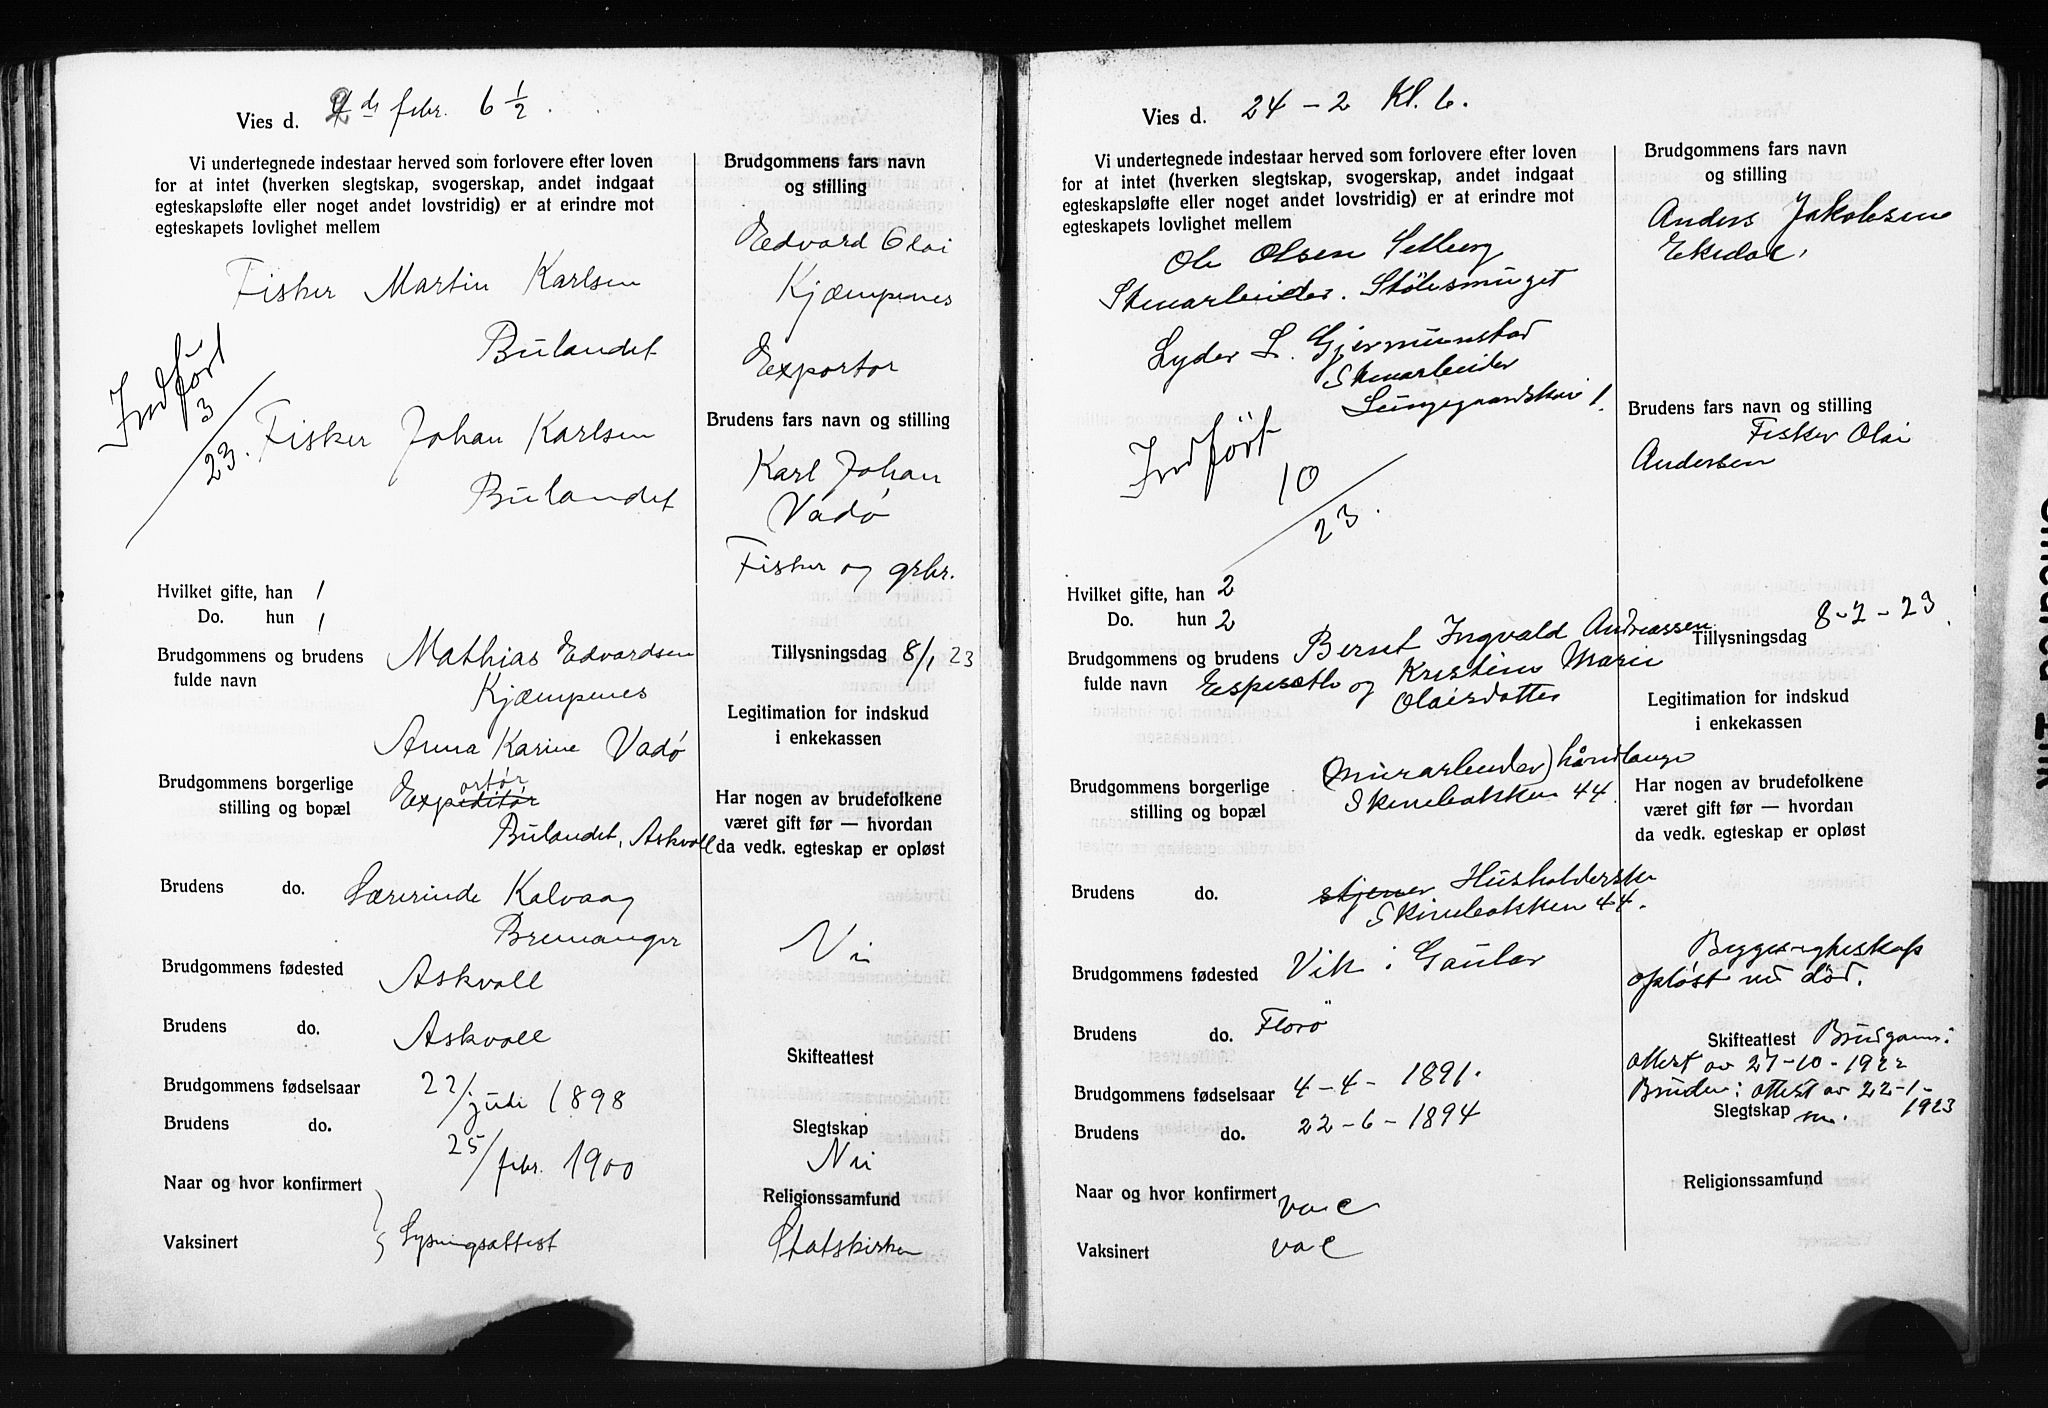 Vies d. 2 de febr. 6 ½.
Vi undertegnede indestaar herved som forlovere efter loven
for at intet (hverken slegtskap, svogerskap, andet indgaat
egteskapsløfte eller noget andet lovstridig) er at erindre mot
egteskapets lovlighet mellem
Fisker Martin Karlsen
Bulandet
Indført
3
23.
Fisker Johan Karlsen
Bulandet
Brudgommens fars navn
og stilling
Edvard Olai
Kjæmpenes
Exportør
Brudens fars navn og stilling
Karl Johan
Vadø
Fisker og grbr.
Hvilket gifte, han 1
Do. hun 1
Brudgommens og brudens
fulde navn
Mathias Edvardsen
Kjæmpenes
Anna Karine Vadø
Tillysningsdag 8/1 23
Legitimation for indskud
i enkekassen
Brudgommens borgerlige
stilling og bopæl
ortør
Expeditør
Bulandet, Askvoll
Har nogen av brudefolkene
været gift før — hvordan
da vedk. egteskap er opløst
Brudens do.
Lærerinde Kalvaag
Bremanger
Nei
Brudgommens fødested Askvoll
Brudens do. Askvoll
Skifteattest
Brudgommens fødselsaar 22/juli 1898
Brudens do. 25/febr. 1900
Slegtskap
Nei
Naar og hvor konfirmert
Vaksinert
Lysningsattest
Religionssamfund
Statskirken
Vies d. 24 - 2 Kl. 6.
Vi undertegnede indestaar herved som forlovere efter loven
for at intet (hverken slegtskap, svogerskap, andet indgaat
egteskapsløfte eller noget andet lovstridig) er at erindre mot
egteskapets lovlighet mellem
Ole Olsen Selberg
Stenarbeider. Stølesmuget
Lyder L. Gjermunstad
Stenarbeider
Lungegaardskaie 1.
Indført
10
23.
Brudgommens fars navn
og stilling
Anders Jakobsen
Ekedal,
Brudens fars navn og stilling
Fisker Olai
Andersen
Hvilket gifte, han 2
Do. hun 2
Brudgommens og brudens
fulde navn
Bernt Ingvald Andreassen
Espeseth og Kristine Marie
Olaisdatter
Tillysningsdag 8-2-23
Legitimation for indskud
i enkekassen
Brudgommens borgerlige
stilling og bopæl
(Murarbeider) håndlanger
Skivebakken 44.
Har nogen av brudefolkene
været gift før — hvordan
da vedk. egteskap er opløst
Brudens do.
Husholderske
Skivebakken 44.
Brudgommens fødested Vik i Gaular
Begges egteskap
opløst ved død.
Brudens do. Florø
Skifteattest Brudgoms:
attest av 27-10-1922
Bruden: attest av 22-1-
1923
Brudgommens fødselsaar 4-4-1891.
Brudens do. 22-6-1894
Slegtskap n.
Naar og hvor konfirmert vac
Religionssamfund
Vaksinert vac